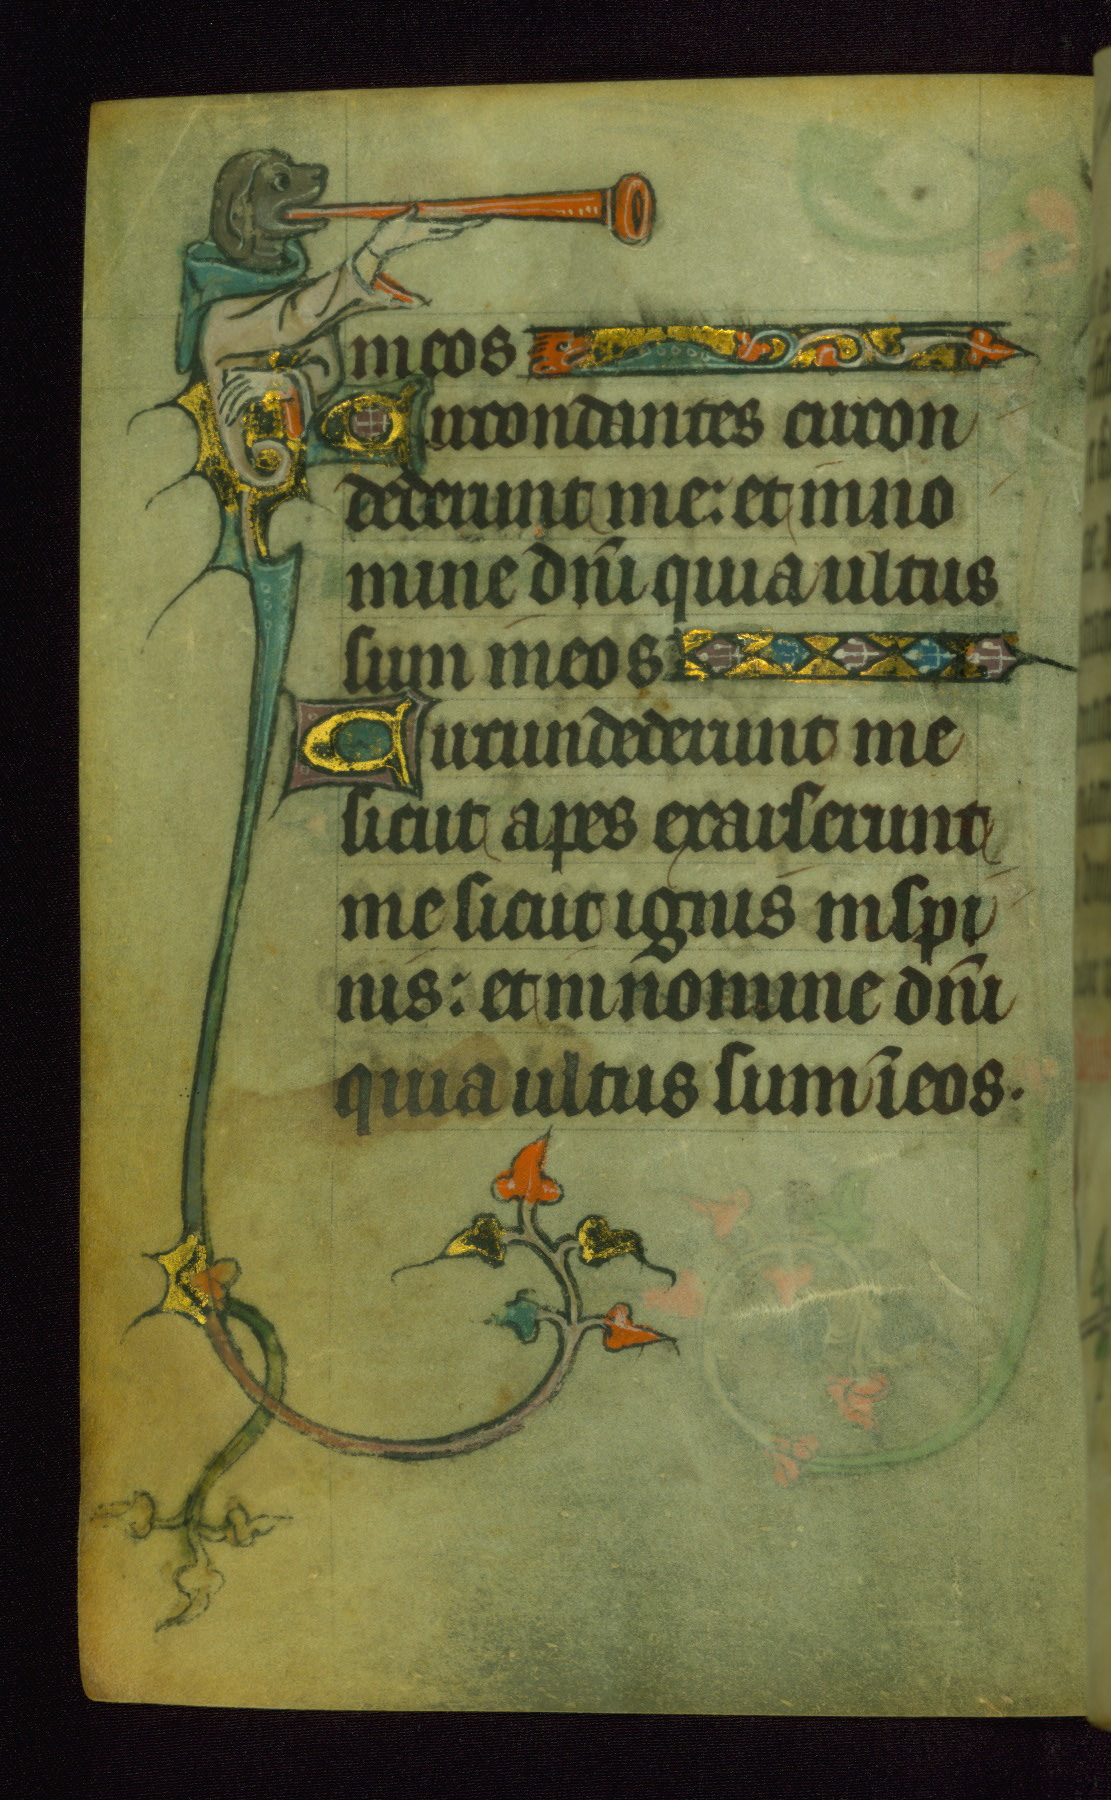 in eos
Circondantes circon
dederunt me: et in no
mine dn̄i quia ultus
sum in eos
Circundederunt me
sicut apes exarserunt
me sicut ignis in spi
nis: et in nomine dn̄i
quia ultus sum ī eos.